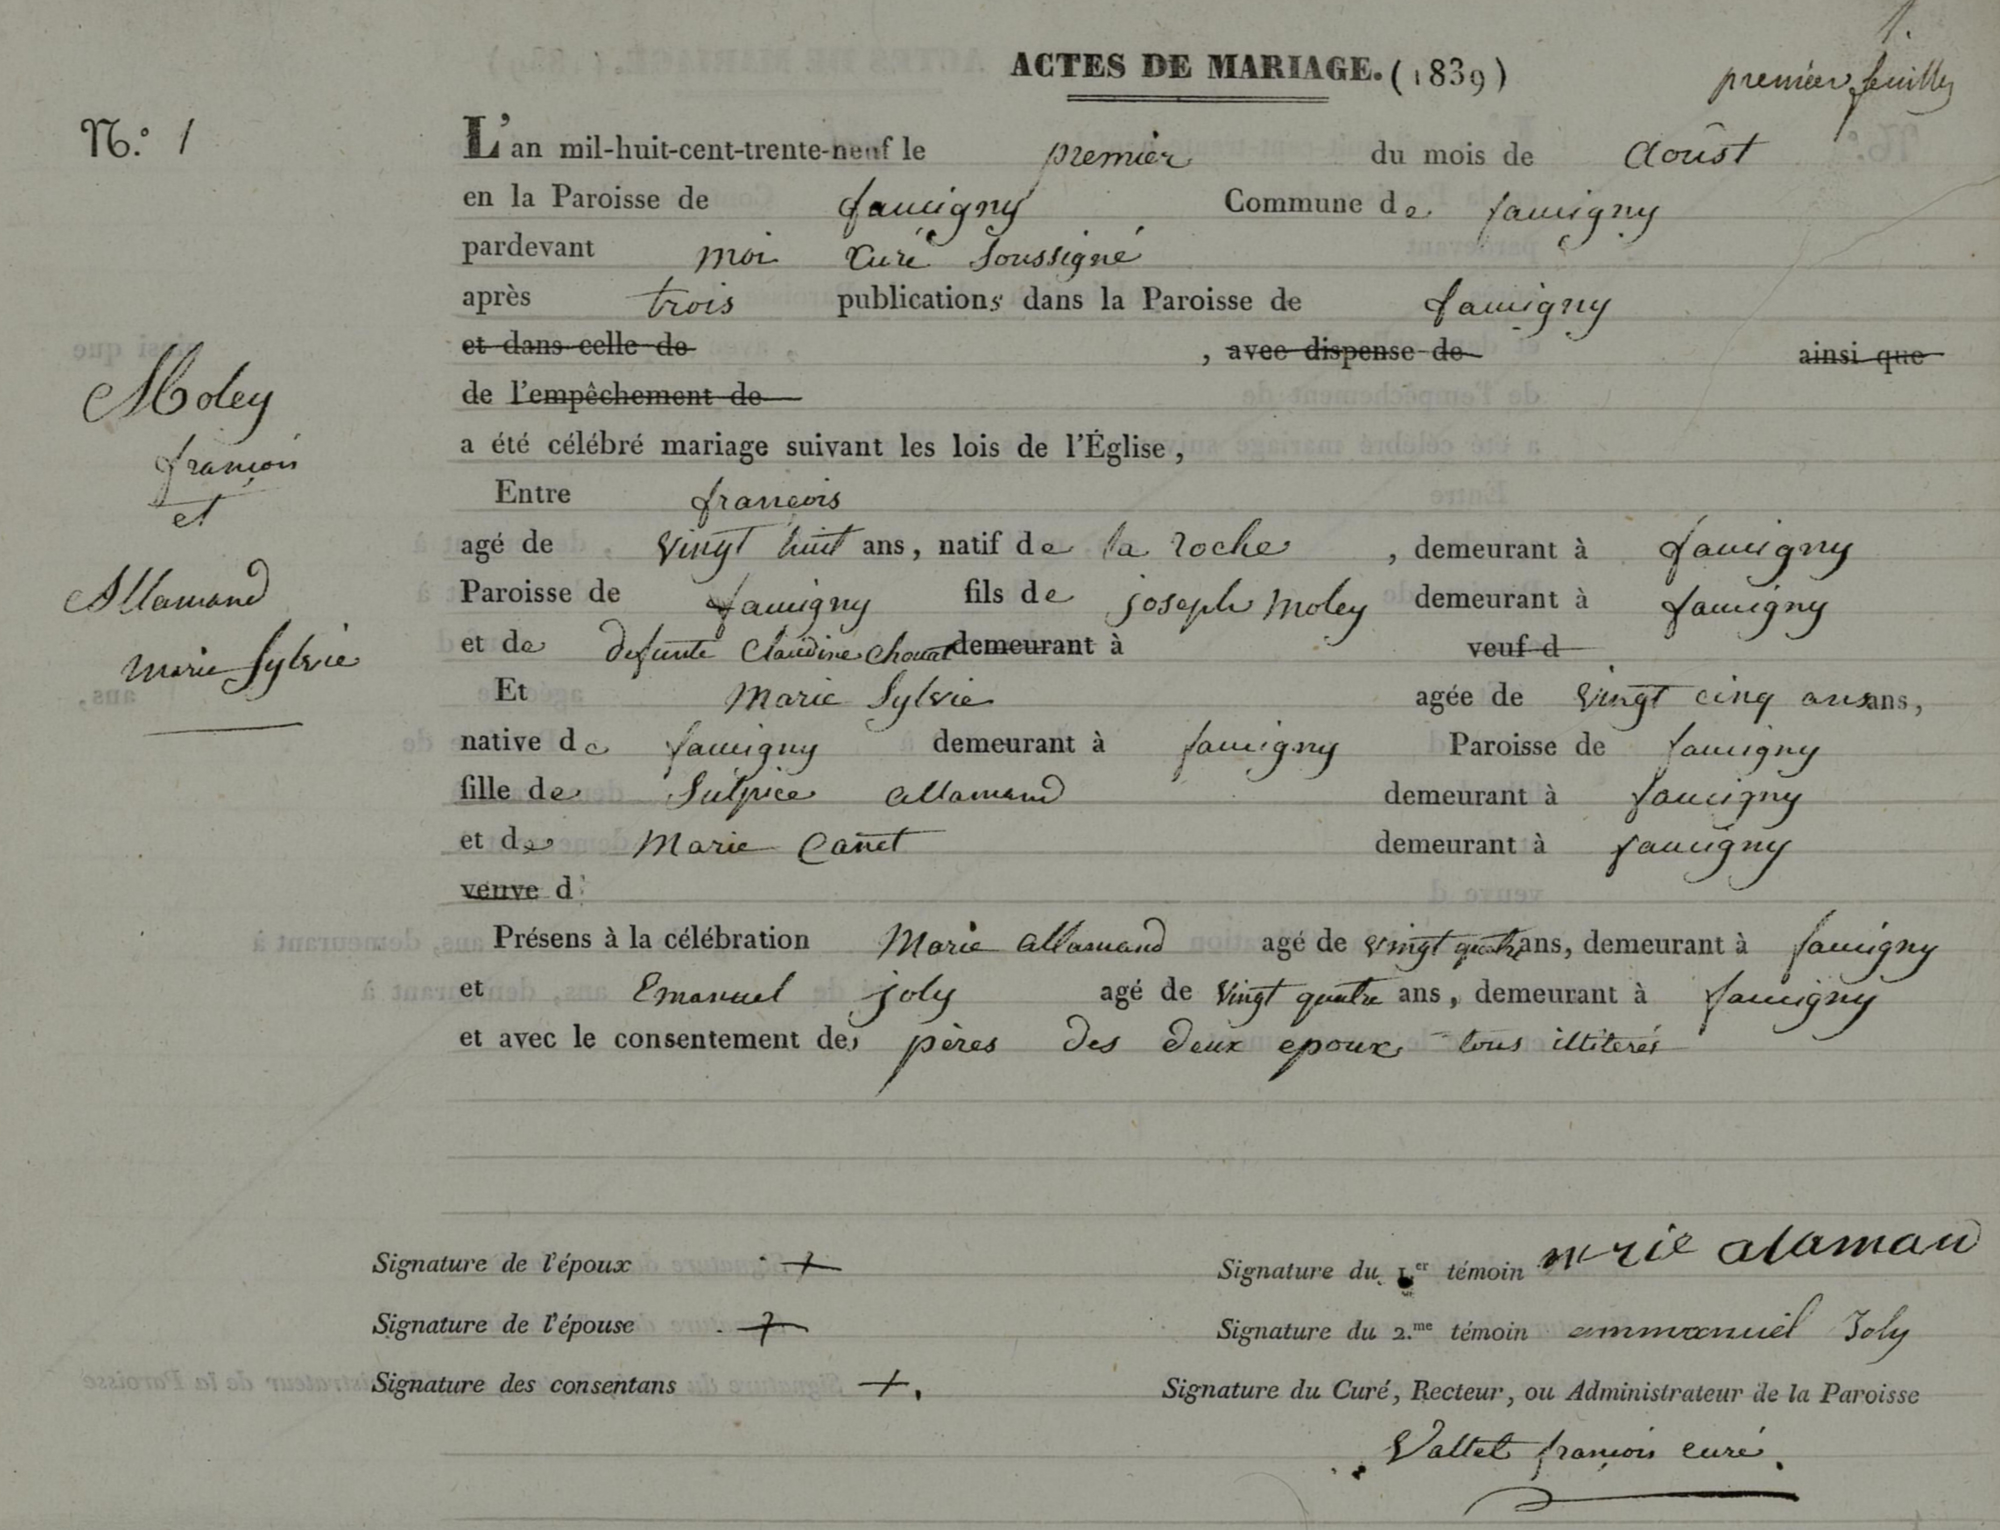 1.
ACTES DE MARIAGE. (1839)
premier feuillet
N.° 1
L'an mil-huit-cent-trente-neuf le premier du mois de Août
en la Paroisse de faucigny Commune de faucigny
pardevant moi Curé Soussigné
après trois publications dans la Paroisse de faucigny
et dans celle de , avec dispense de ainsi que
de l'empêchement de
a été célébré mariage suivant les lois de l'Église,
Entre francois
agé de vingt huit ans, natif de la roche , demeurant à faucigny
Paroisse de faucigny fils de joseph Moley demeurant à faucigny
et de defunte Claudine demeurant à veuf d
Et Marie Sylvie agée de vingt cinq ans ans,
native de faucigny demeurant à faucigny Paroisse de faucigny
fille de Sulpice allamand demeurant à faucigny
et de Marie Canet demeurant à faucigny
veuve d
Présens à la célébration Marie allamand agé de vingt quatre ans, demeurant à faucigny
et Emanuel joly agé de vingt quatre ans, demeurant à faucigny
et avec le consentement des pères des deux epoux tous illiterés
Moley
françois
et
Allamand
marie Sylvie
Signature de l'époux +
Signature de l'épouse +
Signature des consentans +.
Signature du 1.er témoin marie alaman
Signature du 2.me témoin emmanuel Joly
Signature du Curé, Recteur, ou Administrateur de la Paroisse
Vallet françois curé.